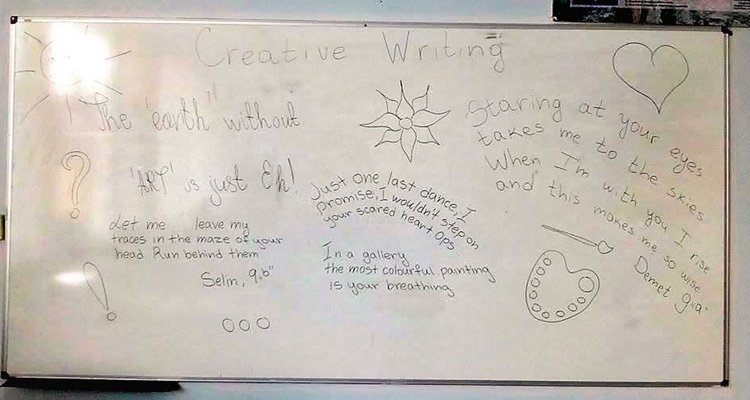 Creative Writing
The 'earth" without
'ART' is just Eh!
Let me leave my
traces in the maze of your
head. Run behind them"
Selin, 9,,b"
Just one last dance, I
promise, I wouldn't step on
your scared heart Ops.
In a gallery
the most colourful painting
is your breathing
Staring at your eyes
takes me to the skies
When I'm with you I rise
and this makes me so wise
Demet 9,,a"